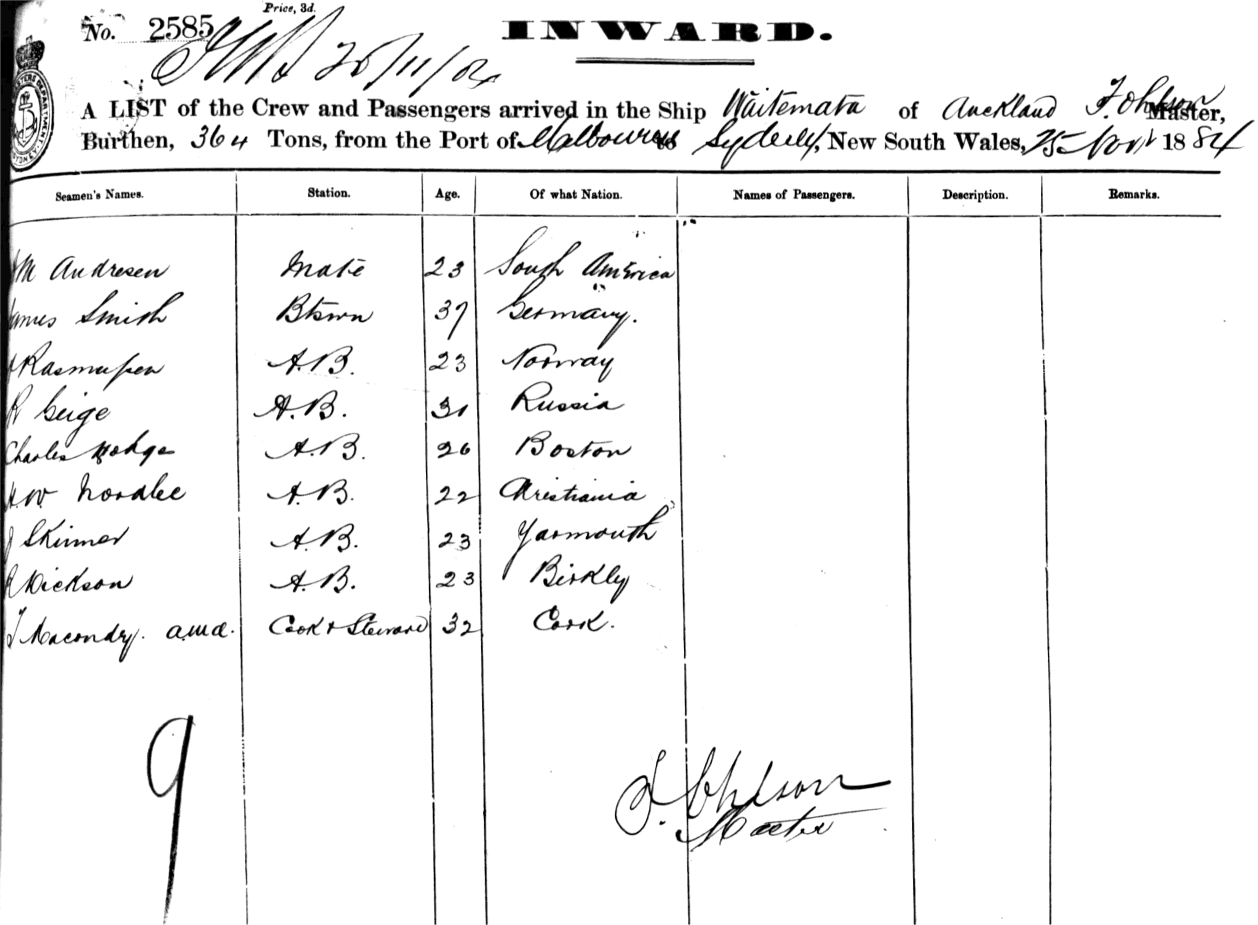 Price, 3d.
No. 2585
INWARD.
25/11/84
A LIST of the Crew and Passengers arrived in the Ship Waitemata of Auckland Master,
Burthen, 364 Tons, from the Port of Melbourne to Sydney, New South Wales, 25 Novr 1884
Seamen's Names. Station. Age. Of what Nation. Names of Passengers. Description. Remarks.
M Andresen Mate 23 South America
James Smith Btswn 37 Germany.
Rasmussen A.B. 23 Norway
R Geige A.B. 31 Russia
Charles Hodge A.B. 26 Boston
W Nordlee A.B. 22 Christiania
J Skinner A.B. 23 Yarmouth
Dickson A.B. 23 Birkly
T Macondry. Cook & Steward 32 Cork.
9
Master